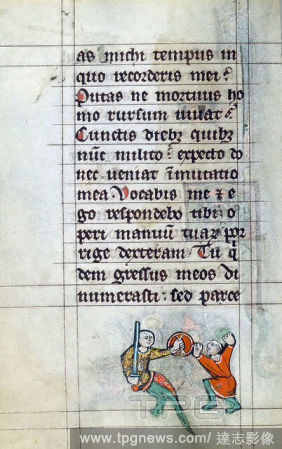 as michi tempus in
quo recorderis mei?
Putas ne mortuus ho
mo rursum uiuat?
Cunctis dieb3 quib3
nūc milito: expecto do
nec ueniat īmutatio
mea. Vocabis me ⁊ e
go respondebo tibi: o
peri manuū tuaꝝ por
rige dexteram. Tu q̇
dem gressus meos di
numerasti: sed parce
TPG
www.tpgnews.com/ 達志影像